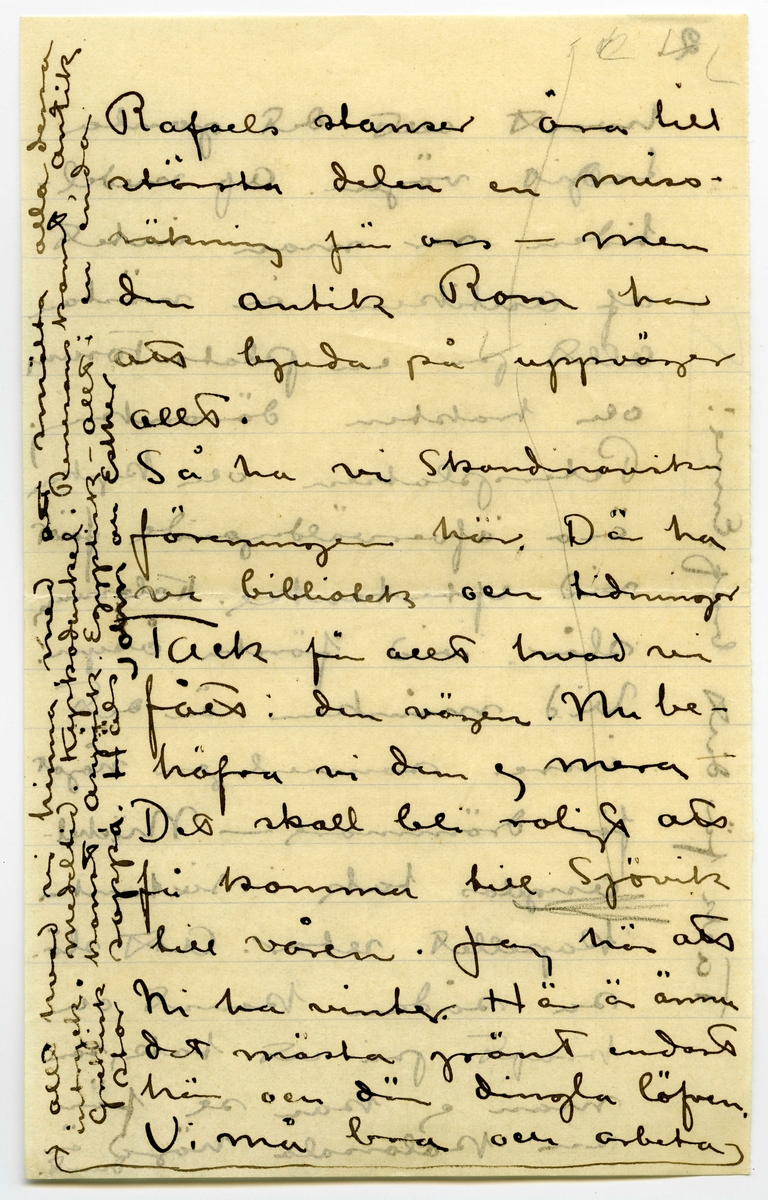 Rafaels stanser ära till
största delen en miss-
räkning för oss – men
den antik Rom har
att bjuda på uppväger
allt.
Så ha vi Skandinaviska
föreningen här. Där ha
vi bibliotek och tidningar
Tack för allt hvad vi
fått i den vägen. Nu be-
höfva vi dem ej mera –
Det skall bli roligt att
få komma till Sjövik
till våren. Jag hör att
Ni ha vinter. Här är ännu
det mästa grönt endast
här och där dingla löfven.
Vi må bra och arbeta
allt hvad vi hinna med att smälta alla dessa
intryck. medeltid. Kyrkodunkel. Renässanskonst, antik
Grekisk konst assyrisk. Egyptisk – allt i en enda
stor soppa. Häls
John och Esther